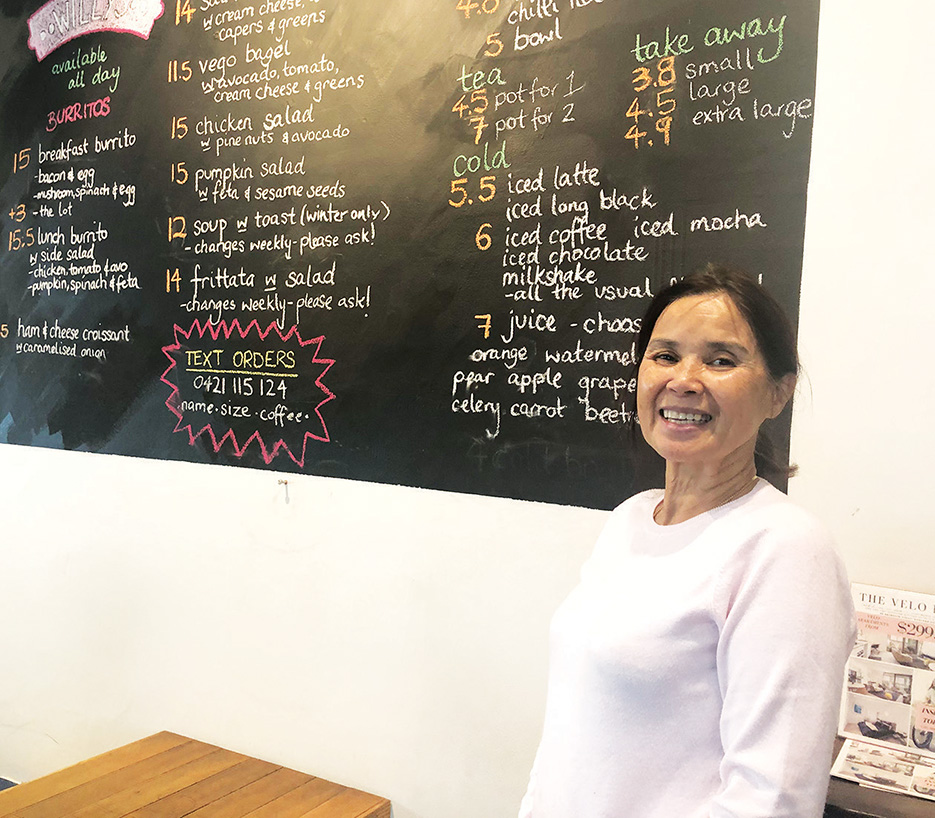 WILLI
available
all day
BURRITOS
15 breakfast burrito
-bacon & egg
-mushroom, spinach & egg
+3 - the lot
15.5 lunch burrito
w side salad
-chicken, tomato & avo
-pumpkin, spinach & feta
5 ham & cheese croissant
w caramelised onion
14
w cream cheese,
capers & greens
11.5 vego bagel
w avocado, tomato,
cream cheese & greens
15 chicken salad
w pine nuts & avocado
15 pumpkin salad
w feta & sesame seeds
12 soup w toast (winter only)
- changes weekly - please ask!
14 frittata w salad
-changes weekly - please ask!
TEXT ORDERS
0421 115 124
name · size · coffee ·
4.0 chilli
5 bowl
tea
4.5 pot for 1
7 pot for 2
cold
5.5 iced latte
iced long black
6 iced coffee iced mocha
iced chocolate
milkshake
-all the usual
7 juice - choos
orange watermel
pear apple grape
celery carrot beet
take away
3.8 small
4.5 large
4.9 extra large
THE VELO
$299